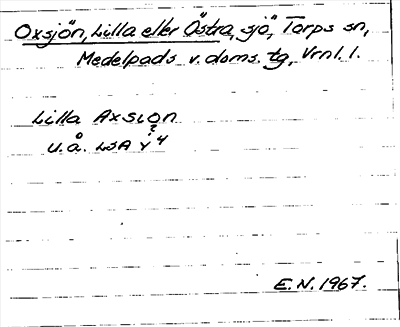 Oxsjön, Lilla eller Östra, sjö, Torps sn,
Medelpads v. doms. tg, Vrnl. l.
Lilla Axsion
u.å. LSA Y 4
E. N. 1967.